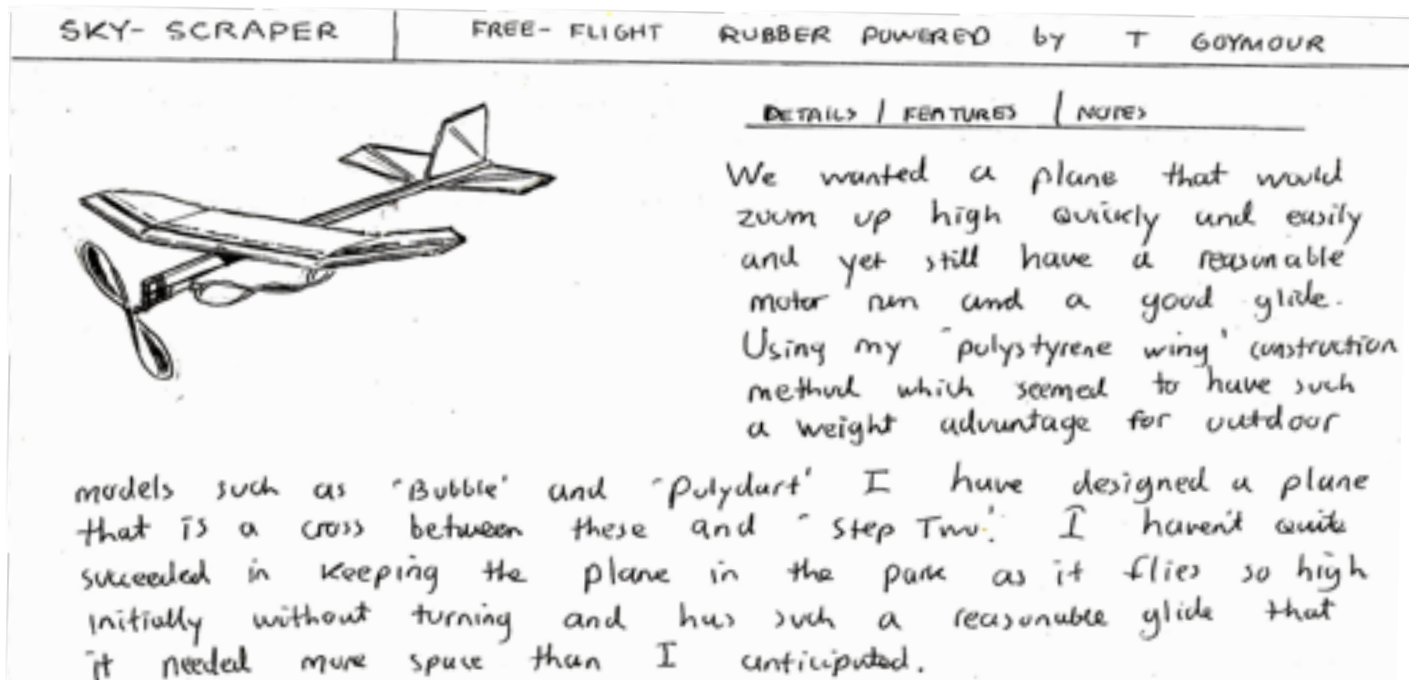 SKY-SCRAPER FREE-FLIGHT RUBBER POWERED by T GOYMOUR
DETAILS / FEATURES / NOTES
We wanted a plane that would
zoom up high quickly and easily
and yet still have a reasonable
motor run and a good glide.
Using my 'polystyrene wing' construction
method which seemed to have such
a weight advantage for outdoor
models such as 'Bubble' and 'Polydart' I have designed a plane
that is a cross between these and 'Step Two'. I haven't quite
succeeded in keeping the plane in the park as it flies so high
initially without turning and has such a reasonable glide that
it needed more space than I anticipated.